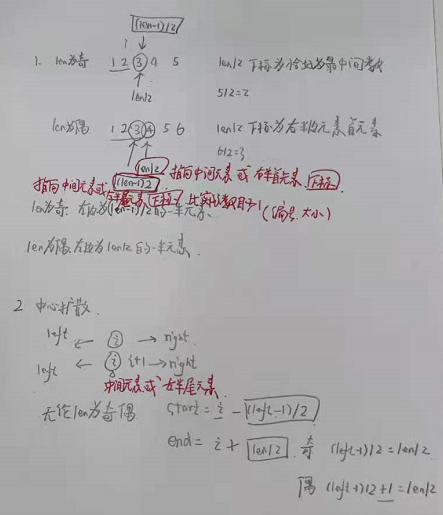 (len-1)/2
1. len为奇 1 2 3 4 5 len/2 下标为恰好为最中间数
len/2 5/2=2
len为偶 1 2 3 4 5 6 len/2 下标为右半元素首元素
6/2=3
len/2 指向中间元素或右半首元素下标
指向中间元素或 (len-1)/2
半尾元素下标 比实际数目少1 (编号.大小)
len为奇: 左边为(len-1)/2的一半元素.
len为偶 左边为len/2的一半元素
2 中心扩散.
left ← i → right
left ← i i+1 → right
中间元素或左半尾元素
无论len为奇偶 start = i - (left-1)/2
end = i + len/2 . 奇 (left-1)/2 = len/2
偶 (left-1)/2+1 = len/2